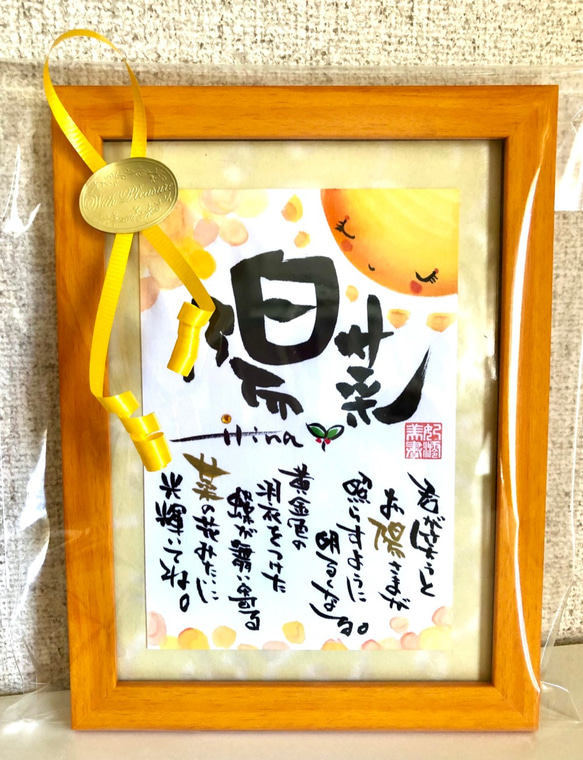 With Pleasure
陽菜
Hina
君が笑うと
お陽さまが
照らすように
明るくなる。
黄金色の
羽衣をつけた
蝶が舞い寄る
菜の花みたいに
光輝いてね。